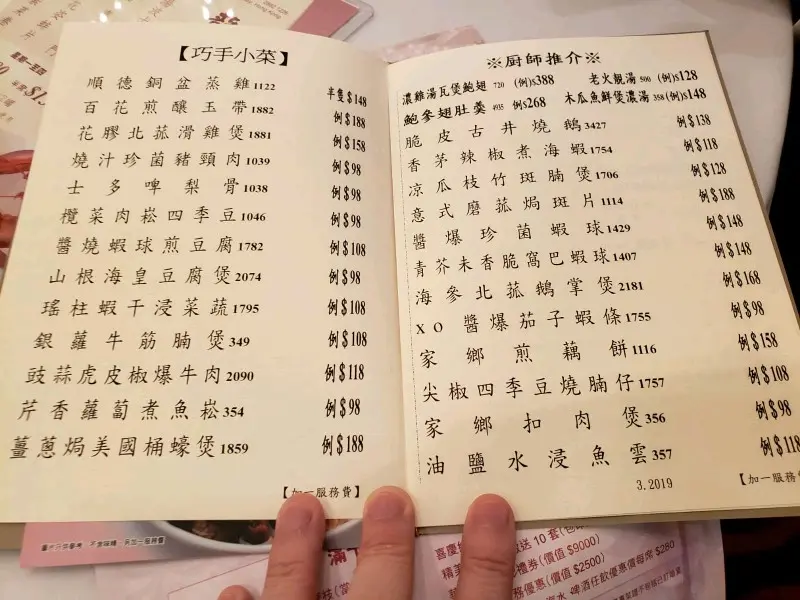 【巧手小菜】
順德銅盆蒸雞1122 半隻$148
百花煎釀玉帶1882 例$188
花膠北菰滑雞煲1881 例$158
燒汁珍菌豬頸肉1039 例$98
士多啤梨骨1038 例$98
欖菜肉崧四季豆1046 例$98
醬燒蝦球煎豆腐1782 例$108
山根海皇豆腐煲2074 例$98
瑤柱蝦干浸菜蔬1795 例$108
銀蘿牛筋腩煲349 例$108
豉蒜虎皮椒爆牛肉2090 例$118
芹香蘿蔔煮魚崧354 例$98
薑蔥焗美國桶蠔煲1859 例$188
【加一服務費】
※厨師推介※
濃雞湯瓦煲鮑翅 720 (例)$388 老火靚湯 500 (例)$128
鮑參翅肚羹 4935 例$268 木瓜魚鮮煲濃湯 358(例)$148
脆皮古井燒鵝3427 例$138
香茅辣椒煮海蝦1754 例$118
凉瓜枝竹斑腩煲1706 例$128
意式磨菰焗斑片1114 例$188
醬爆珍菌蝦球1429 例$148
青芥末香脆窩巴蝦球1407 例$148
海參北菰鵝掌煲2181 例$168
XO醬爆茄子蝦條1755 例$98
家鄉煎藕餅1116 例$158
尖椒四季豆燒腩仔1757 例$108
家鄉扣肉煲356 例$98
油鹽水浸魚雲357 例$118
3.2019
【加一服務費
送 10 套
禮券(價值 $9000)
服務優惠(價值 $2500)
啤酒任飲優惠價每席 $280